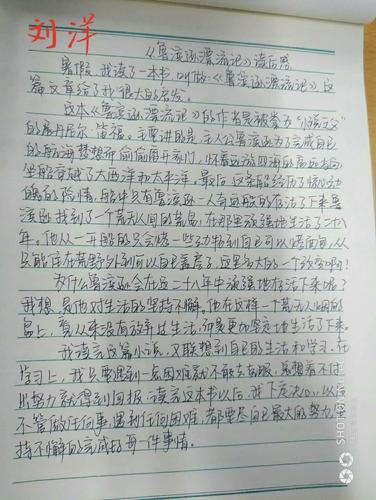 刘洋
《鲁滨逊漂流记》读后感
暑假,我读了一本书,叫做《鲁滨逊漂流记》这
篇文章给了我很大的启发。
这本《鲁滨逊漂流记》的作者是被誉为"小说之父"
的丹尼尔·笛福。主要讲的是:主人公鲁滨逊为了完成自己
的航海梦想而偷偷离开家门,怀着远游四海的高远志向,
坐船穿越了大西洋和太平洋。最后,这条船经历了惊心动
魄的险情,船中只有鲁滨逊一人奇迹般的存活了下来鲁
滨逊找到了一个荒无人间的荒岛,在那里顽强地生活了二十八
年。他从一开始的只会烧一些动物到自己可以烤面包,从
只能住在荒野外到可以自己盖房子,这是多大的一个改变啊!
为什么鲁滨逊会在这二十八年中顽强地存活下来呢?
我想,是他对生活的坚持不懈。他在这样一个荒无人烟的
岛上,看从来没有放弃过生活,而是更加坚定地生活了下来。
我读完这篇小说,又联想到自己的生活和学习。在
学习上,我只要遇到一点困难就不敢去克服,总想着不付
出努力就得到回报。读完这本书以后,我下定决心,以后
不管做任何事,遇到任何困难,都要尽自己最大的努力,坚
持不懈的完成好每一件事情。
SHOT ON